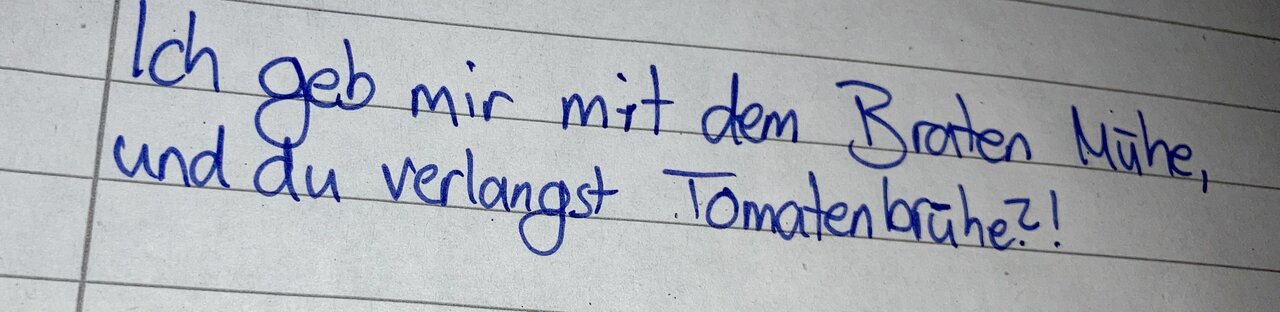 Ich geb mir mit dem Braten Mühe,
und du verlangst Tomatenbrühe?!